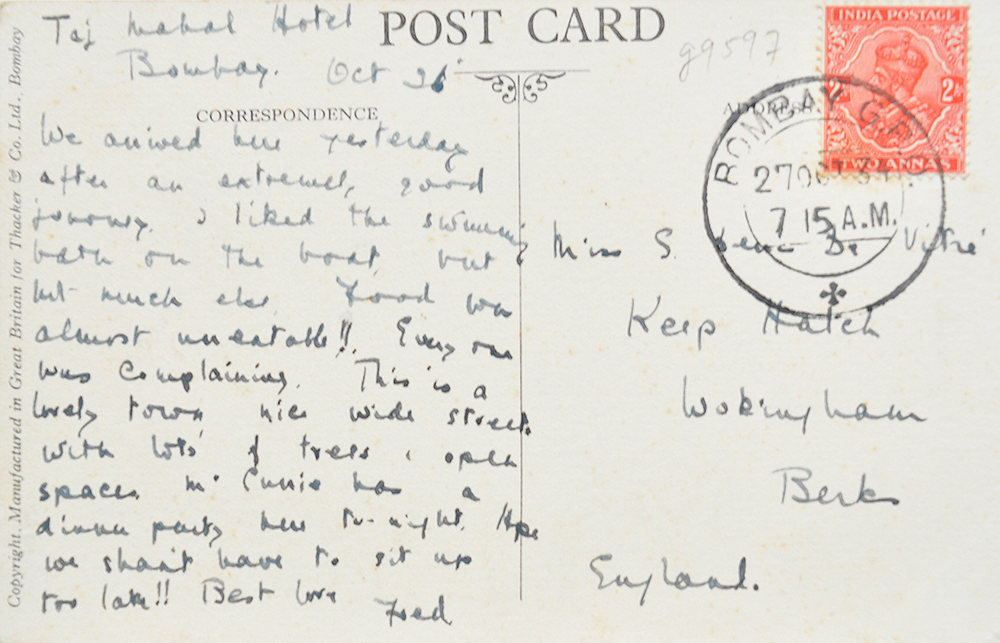 Taj Mahal Hotel
Bombay. Oct 26
POST CARD
g9597
CORRESPONDENCE
ADDRESS
INDIA POSTAGE
2A
TWO ANNAS
BOMBAY G.P.O
27 OCT 34
7 15 A.M.
We arrived here yesterday
after an extremely good
journey. I liked the swimming
bath on the boat, but
not much else. Food was
almost uneatable!! Every one
was complaining. This is a
lovely town nice wide streets
with lots of trees & open
spaces. Mr has a
dinner party here to-night. Hope
we shan't have to sit up
too late!! Best love
Fred
Miss S. De Vitré
Keep Hatch
Wokingham
Berks
England.
Copyright. Manufactured in Great Britain for Thacker & Co. Ltd., Bombay